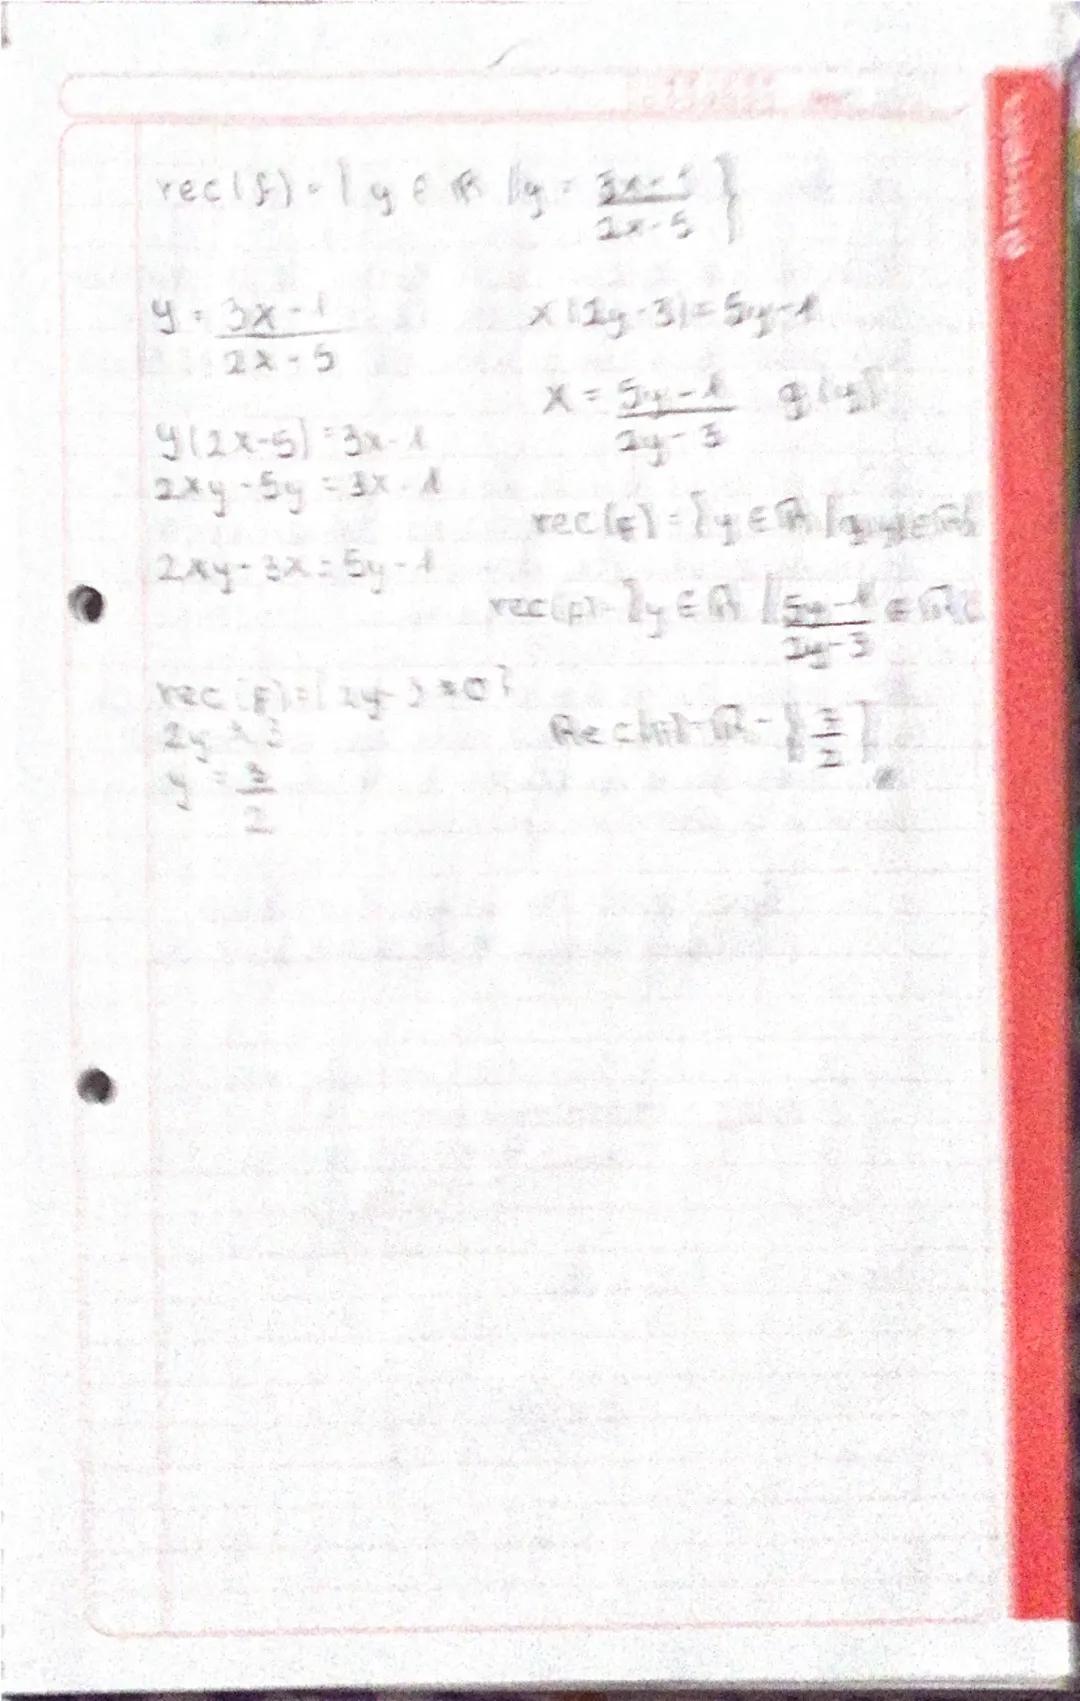 rec(f) = { y ∈ ℝ / y = (3x-1)/(2x-5) }
y = (3x-1)/(2x-5)
y(2x-5) = 3x-1
2xy-5y = 3x-1
2xy-3x = 5y-1
rec(f) = {2y-3≠0}
2y ≠ 3
y = 3/2
x(2y-3) = 5y-1
x = (5y-1)/(2y-3) g(y)
rec(f) = {y ∈ ℝ / g(y) ∈ ℝ}
rec(f) = {y ∈ ℝ / (5y-1)/(2y-3) ∈ ℝ}
Rec(f) = ℝ - {3/2}